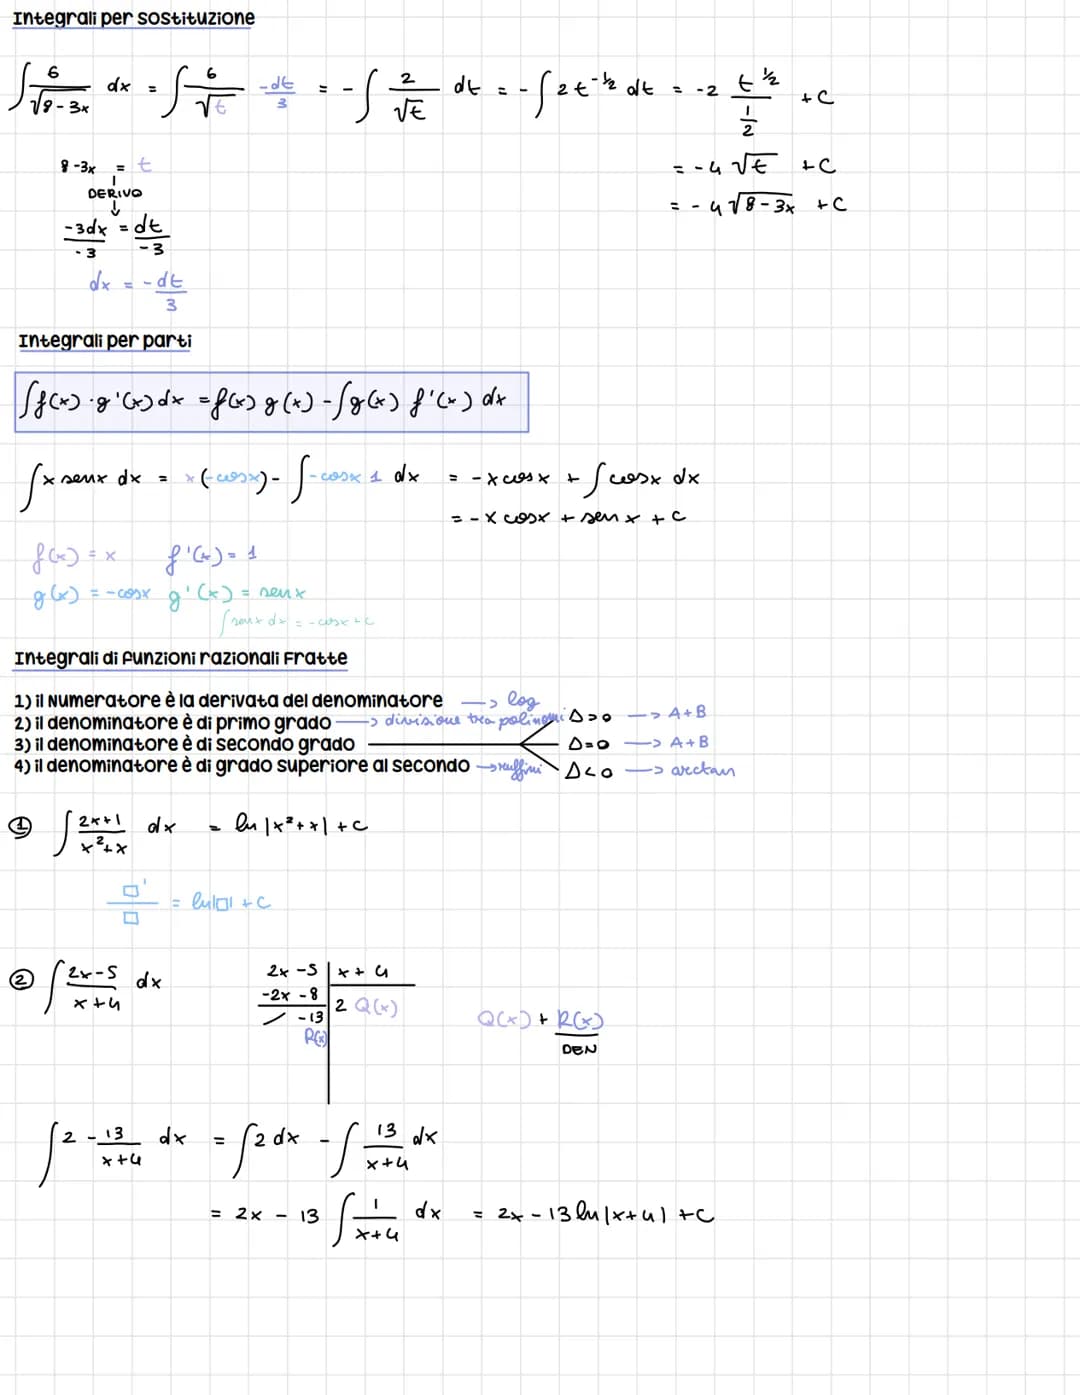 Integrali per sostituzione
∫ 6/√8-3x dx = ∫ 6/√t -dt/3 = -∫ 2/√t dt = -∫ 2t^-1/2 dt = -2 t^1/2 / 1/2 +C
8-3x = t
= -4√t +C
DERIVO
= -4√8-3x +C
-3dx/-3 = dt/-3
dx = -dt/3
Integrali per parti
∫f(x)·g'(x)dx = f(x)g(x) - ∫g(x) f'(x) dx
∫x senx dx = x(-cosx) - ∫-cosx 1 dx = -x cosx + ∫cosx dx
= -x cosx + senx + c
f(x) = x f'(x) = 1
g(x) = -cosx g'(x) = senx
∫senx dx = -cosx + c
Integrali di funzioni razionali Fratte
1) il Numeratore è la derivata del denominatore → log
2) il denominatore è di primo grado → divisione tra polinomi Δ>0 → A+B
3) il denominatore è di secondo grado Δ=0 → A+B
4) il denominatore è di grado superiore al secondo → ruffini Δ<0 → arctan
① ∫ 2x+1/x²+x dx = ln|x²+x| + c
□'/□ = ln|□| + C
② ∫ 2x-5/x+4 dx 2x -5 | x+4
-2x -8 | 2 Q(x)
-13
Q(x) + R(x)/DEN
R(x)
∫ 2 - 13/x+4 dx = ∫2 dx - ∫ 13/x+4 dx
= 2x - 13 ∫ 1/x+4 dx = 2x - 13 ln|x+4| + C